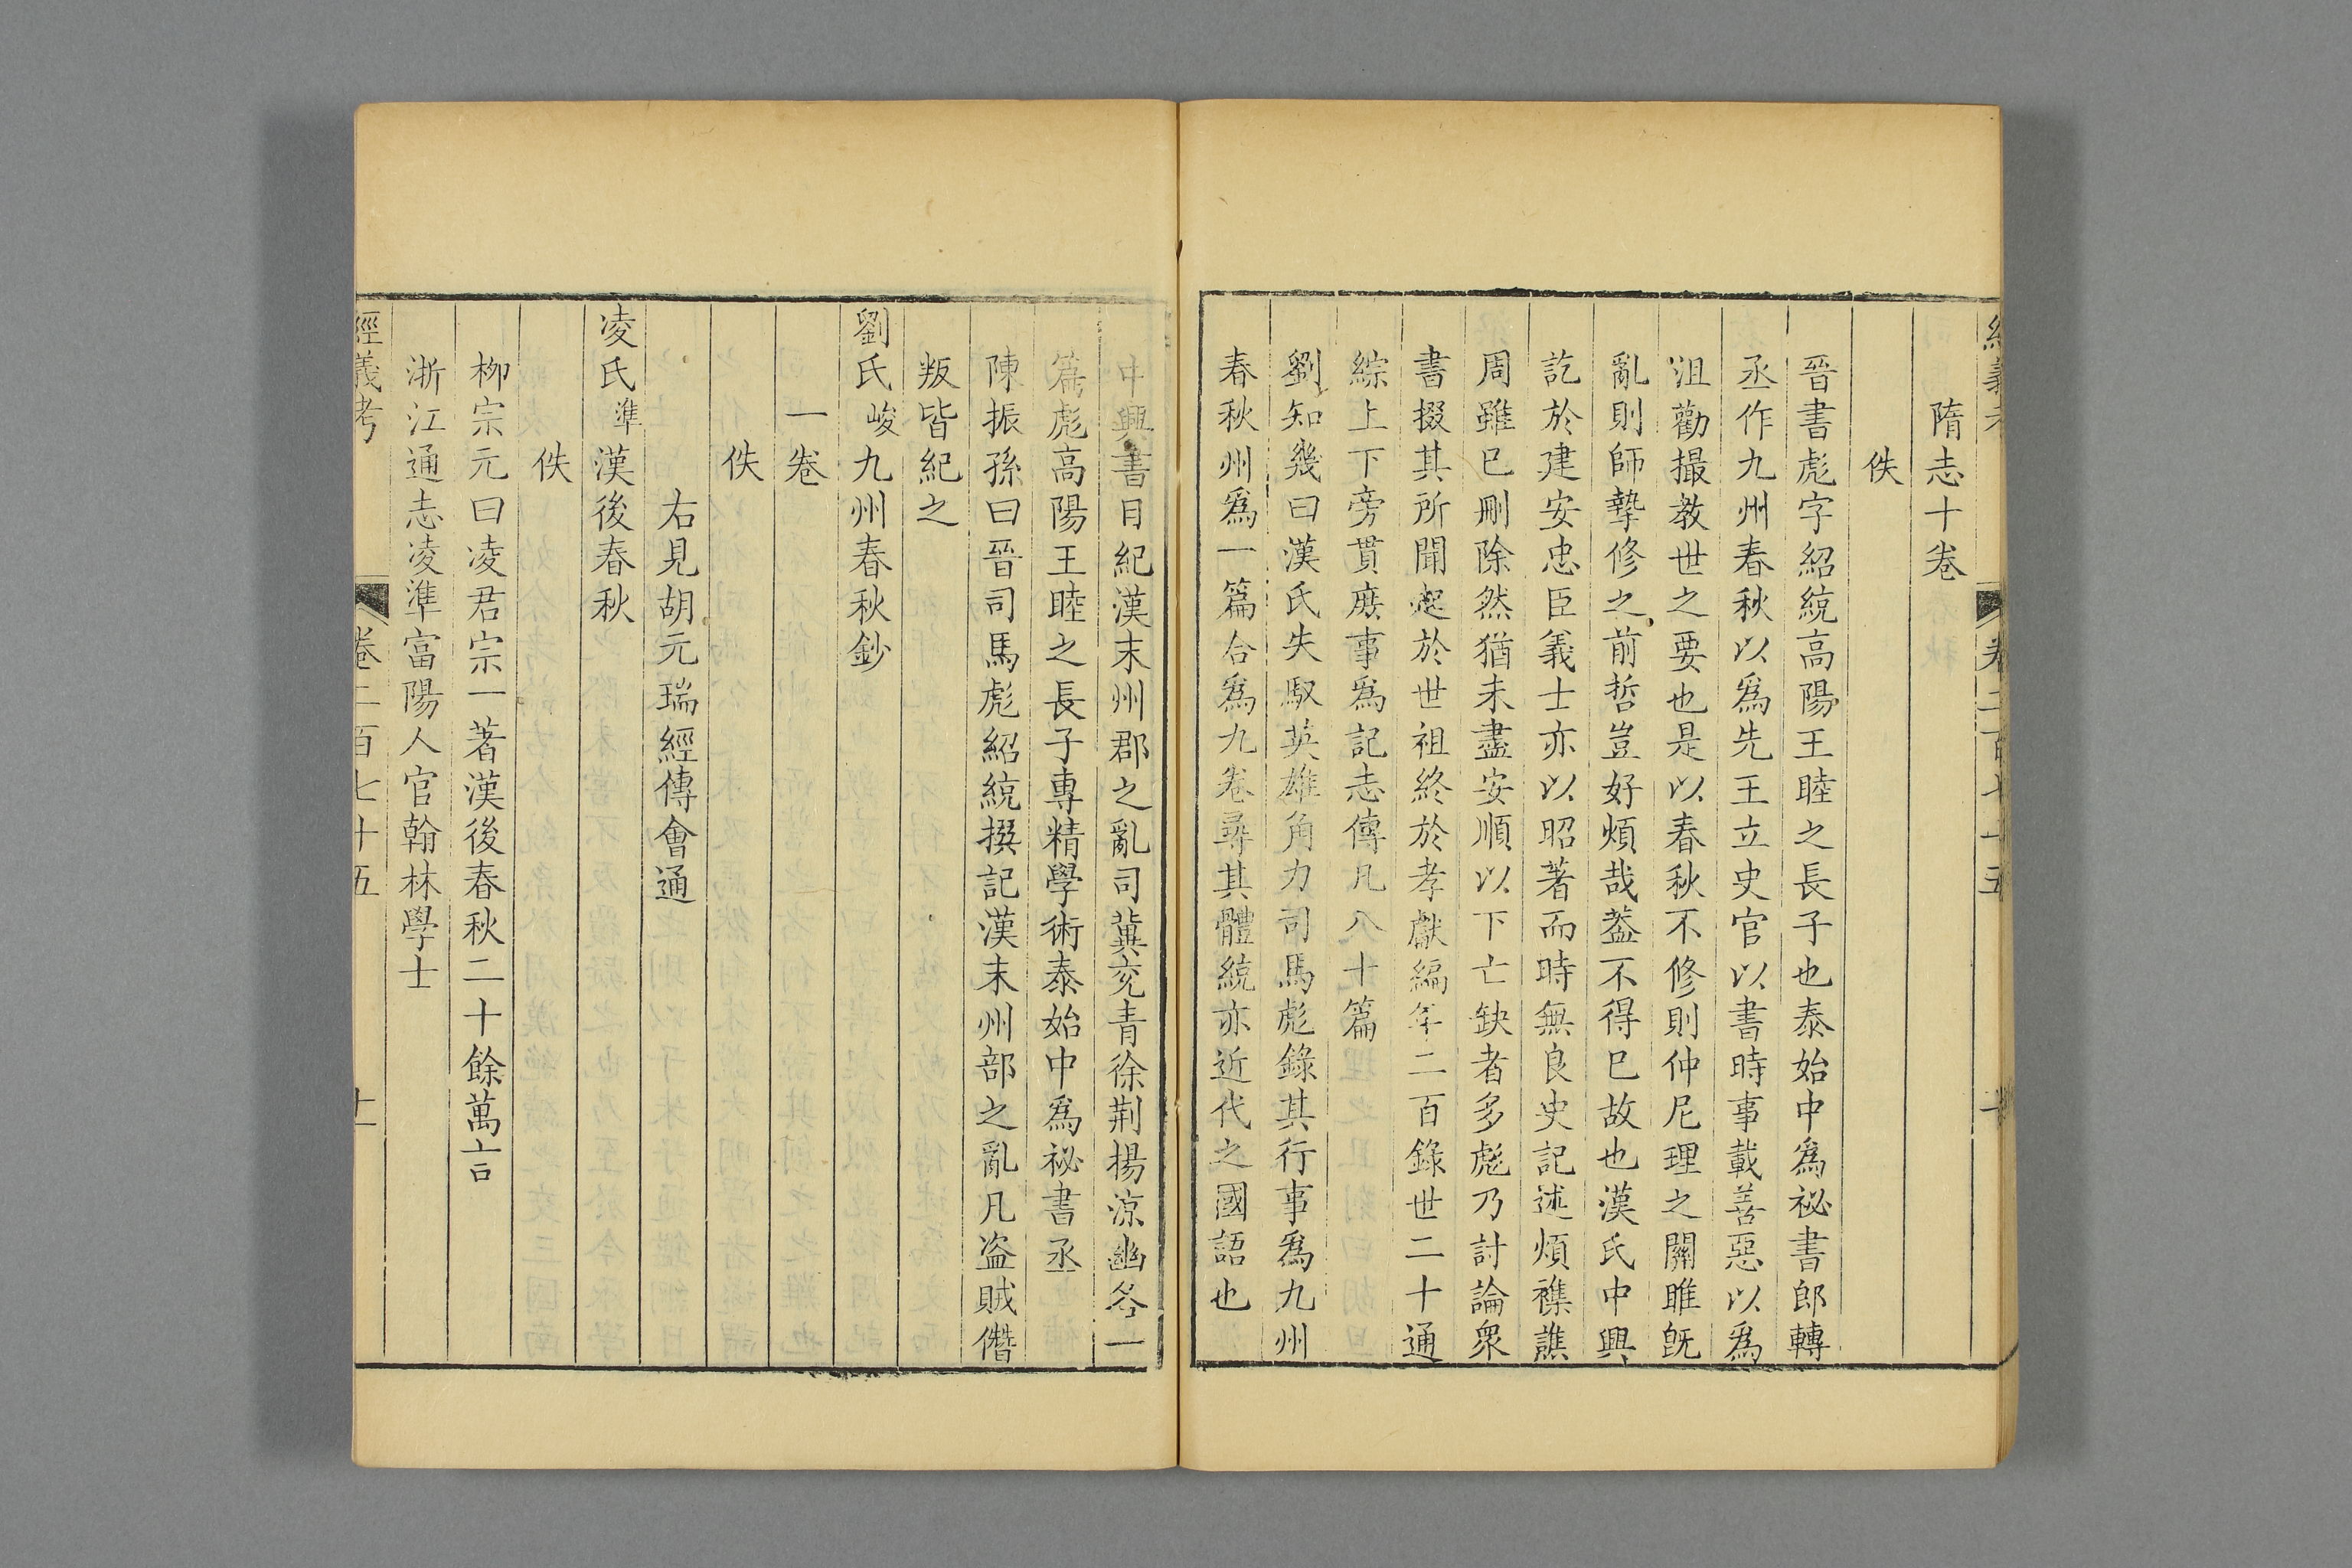 經義考 卷二百七十五 十
隋志十卷
佚
晉書彪字紹統高陽王睦之長子也泰始中爲祕書郎轉
丞作九州春秋以爲先王立史官以書時事載善惡以爲
沮勸撮教世之要也是以春秋不修則仲尼理之關雎旣
亂則師摯修之前哲豈好煩哉葢不得巳故也漢氏中興
訖於建安忠臣義士亦以昭著而時無良史記述煩襍譙
周雖巳刪除然猶未盡安順以下亡缺者多彪乃討論衆
書掇其所聞起於世祖終於孝獻編年二百錄世二十通
綜上下旁貫庶事爲記志傳凡八十篇
劉知幾曰漢氏失馭英雄角力司馬彪錄其行事爲九州
春秋州爲一篇合爲九卷尋其體統亦近代之國語也
中興書目紀漢末州郡之亂司冀兗青徐荆揚涼幽各一
篇彪高陽王睦之長子專精學術泰始中爲祕書丞
陳振孫曰晉司馬彪紹統撰記漢末州部之亂凡盗賊僭
叛皆紀之
劉氏峻九州春秋鈔
一卷
佚
右見胡元瑞經傳會通
凌氏準漢後春秋
佚
柳宗元曰凌君宗一著漢後春秋二十餘萬言
浙江通志凌準富陽人官翰林學士
經義考 卷二百七十五 十一